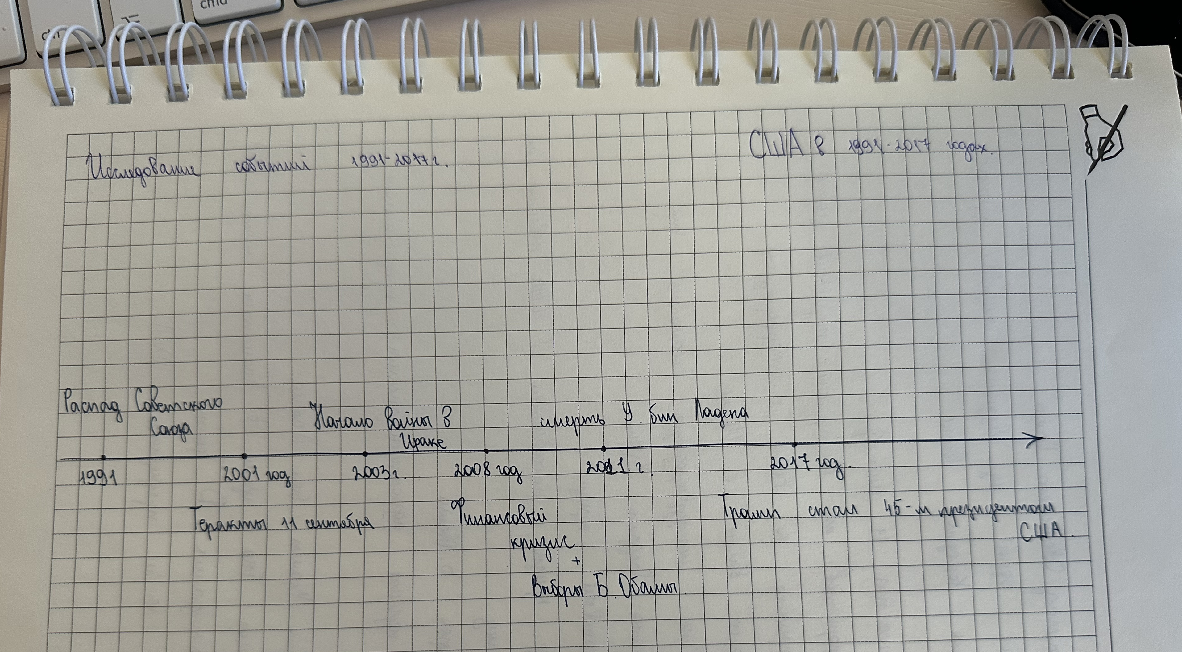 cmd
Исследование событий 1991-2017 г.
США в 1991-2017 годах.
Распад Советского
Союза
Начало войны в
Ираке
смерть У. бин Ладена
1991
2001 год
2003 г.
2008 год
2011 г.
2017 год.
Теракты 11 сентября
Финансовый
кризис
+
Выборы Б. Обамы
Трамп стал 45-м президентом
США.